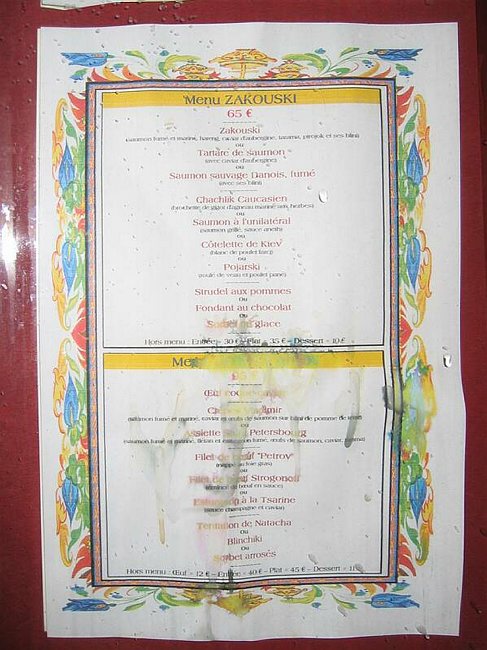 Menu ZAKOUSKI
65 €
Zakouski
(saumon fumé et mariné, hareng, caviar d'aubergine, tarama, pirojok et ses blini)
ou
Tartare de saumon
(avec caviar d'aubergine)
ou
Saumon sauvage Danois, fumé
(avec ses blini)
Chachlik Caucasien
(brochette de gigot d'agneau mariné aux herbes)
ou
Saumon à l'unilatéral
(saumon grillé, sauce aneth)
ou
Côtelette de Kiev
(blanc de poulet farci)
ou
Pojarski
(roulé de veau et poulet pané)
Strudel aux pommes
Ou
Fondant au chocolat
ou
Sorbet ou glace
Hors menu : Entrée - 30 € - Plat - 35 € - Dessert - 10 €
Œuf coque
ou
(saumon fumé et mariné, caviar et œufs de saumon sur blini de pomme de terre)
ou
Assiette Petersbourg
(saumon fumé et mariné, flétan et fumé, œufs de saumon, caviar, tarama)
Filet de bœuf "Petrov"
(nappé au foie gras)
ou
Filet de bœuf Strogonoff
(émincé de bœuf en sauce)
ou
à la Tsarine
(sauce champagne et caviar)
Tentation de Natacha
ou
Blinchiki
Ou
Sorbet arrosés
Hors menu : Œuf - 12 € - Entrée - 40 € - Plat - 45 € - Dessert -